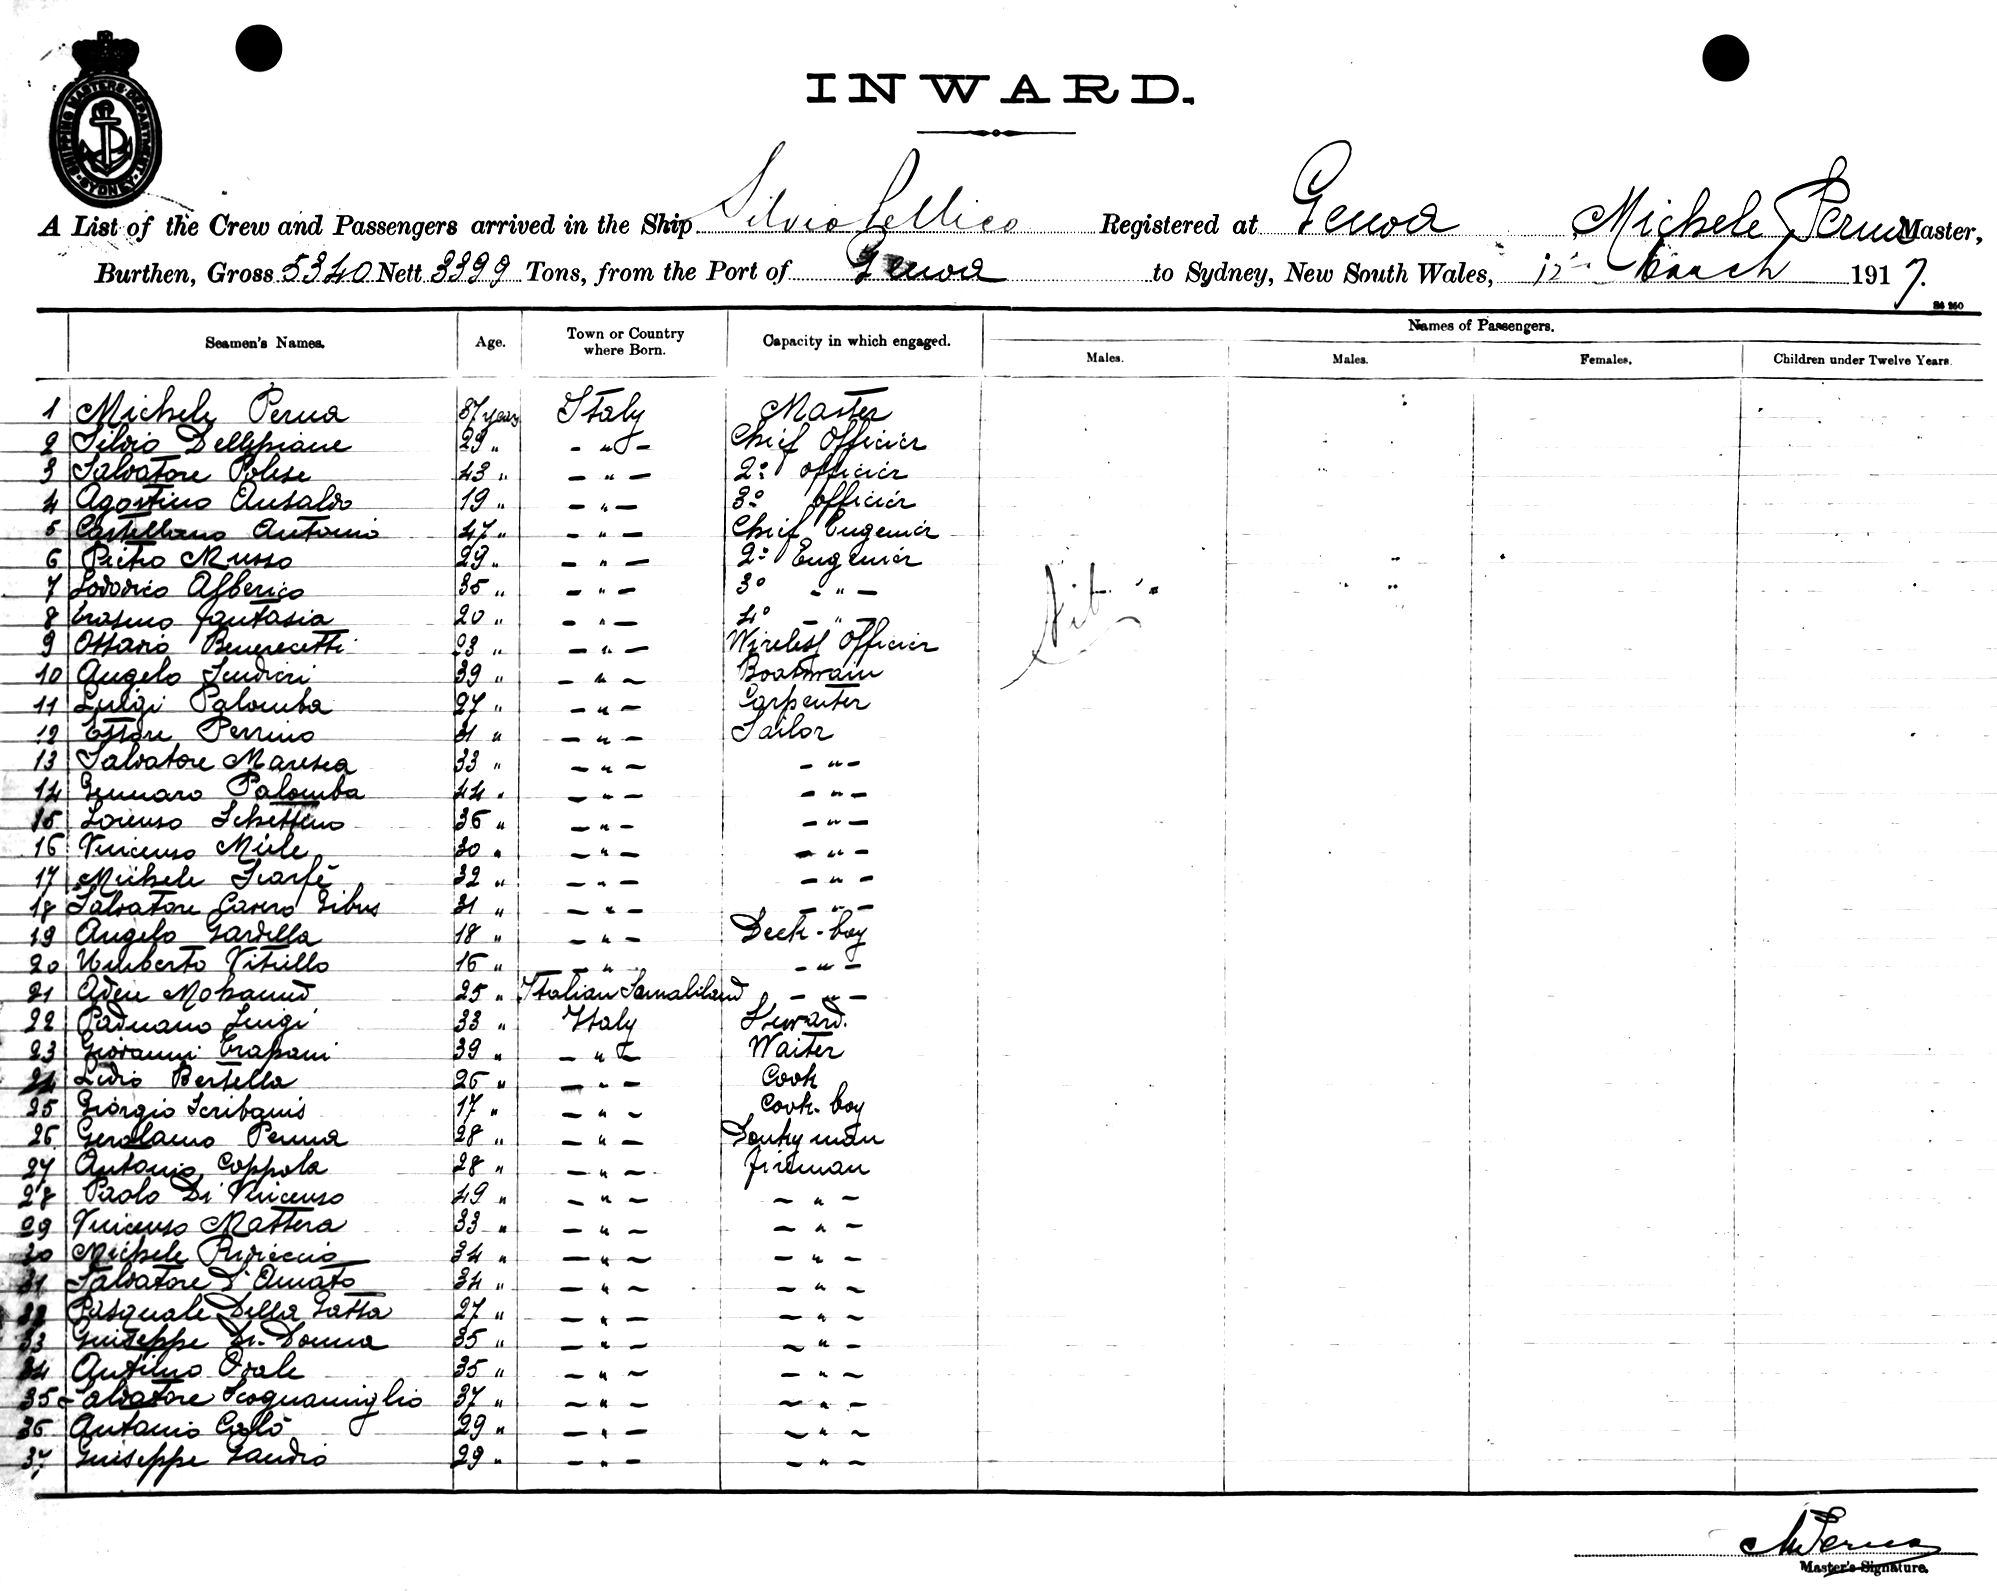 SHIPPING MASTERS DEPARTMENT
SYDNEY
INWARD.
A List of the Crew and Passengers arrived in the Ship Silvio Pellico Registered at Genoa Michele Perna Master,
Burthen, Gross 5340 Nett 3399 Tons, from the Port of Genoa to Sydney, New South Wales, 12th March 1917.
Names of Passengers.
Seamen's Names. Age. Town or Country where Born. Capacity in which engaged. Males. Males. Females. Children under Twelve Years.
1 Michele Perna 37 years Italy Master
2 Silvio Dellepiane 29 " - " - Chief Officier
3 Salvatore Polese 43 " - " - 2º officier
4 Agostino Ansaldo 19 " - " - 3º officier
5 Castellano Antonio 47 " - " - Chief Engenier
6 Pietro Musso 29 " - " - 2º Engenier
7 Lodovico Alberico 35 " - " - 3º - " -
8 Erasmo Fantasia 20 " - " - 4º - " -
9 Ottavio Benerecetti 23 " - " - Wireless Officier
10 Angelo 39 " - " - Boatswain
11 Luigi Palomba 27 " - " - Carpenter
12 Ettore Perrino 31 " - " - Sailor
13 Salvatore Maresca 33 " - " - - " -
14 Gennaro Palomba 44 " - " - - " -
15 Lorenso Schettino 36 " - " - - " -
16 Vincenso Miele 30 " - " - - " -
17 Michele Scarfè 32 " - " - - " -
18 Salvatore Gibus 31 " - " - - " -
19 Angelo Gardella 18 " - " - Deck-boy
20 Umberto Vitiello 16 " - " - - " -
21 Aden Mohamed 25 " Italian Somaliland - " -
22 Paduano Luigi 33 " Italy Steward.
23 Giovanni Trapani 39 " - " - Waiter
24 Lidio Bertella 26 " - " - Cook
25 Giorgio Scribanis 17 " - " - Cook-boy
26 Gerolamo Penna 28 " - " - Donky man
27 Antonio Coppola 28 " - " - Fireman
28 Paolo Di Vincenso 49 " - " - - " -
29 Vincenso Mattera 33 " - " - - " -
30 Michele 34 " - " - - " -
31 Salvatore D'Amato 34 " - " - - " -
32 Pasquale Della Gatta 27 " - " - - " -
33 Guiseppe Di Donna 35 " - " - - " -
34 35 " - " - - " -
35 Salvatore Scognamiglio 37 " - " - - " -
36 Antonio Calò 29 " - " - - " -
37 Guiseppe Gaudio 29 " - " - - " -
Nil
M Perna
Master's Signature.